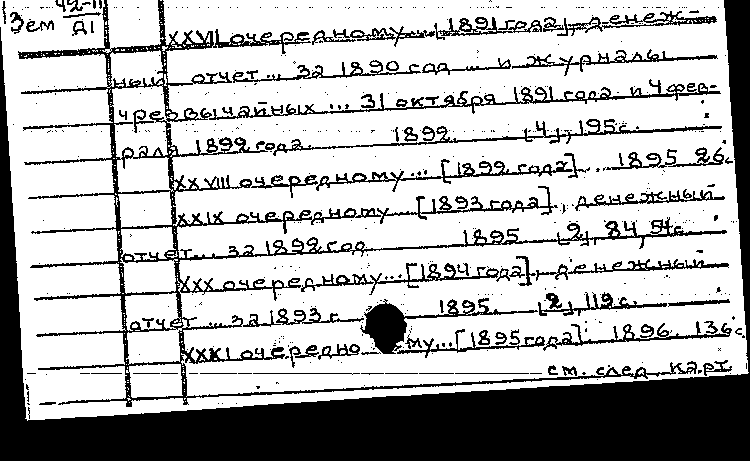 Зем 42-11
Д1
XXVII очередному... [1891 года], денеж-
ный отчет... за 1890 год ... и журналы
чрезвычайных ... 31 октября 1891 года и 4 фев-
раля 1892 года. 1892. [4], 195 с.
XXVIII очередному... [1892 года]. 1895 26.
XXIX очередному ... [1893 года], денежный
отчет... за 1892 год 1895 [2], 84, 54 с.
XXX очередному... [1894 года], денежный
отчет ... за 1893 г. 1895. [2], 119 с.
XXXI очередному... [1895 года]. 1896. 136 с
см. след. карт.